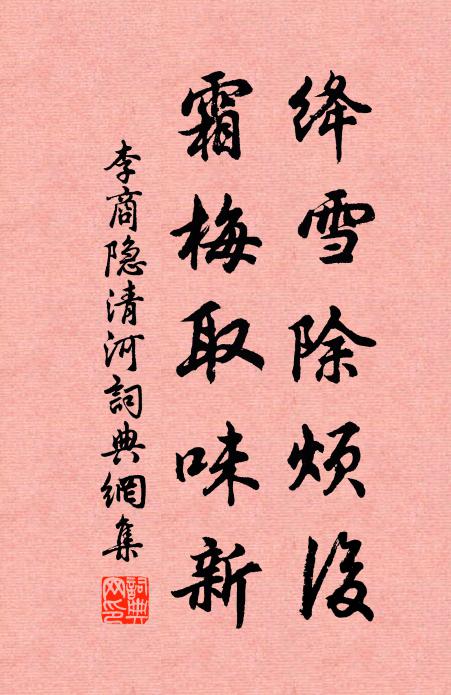 绛雪除烦後
霜梅取味新
李商隐清河詞典網集
詞典網印